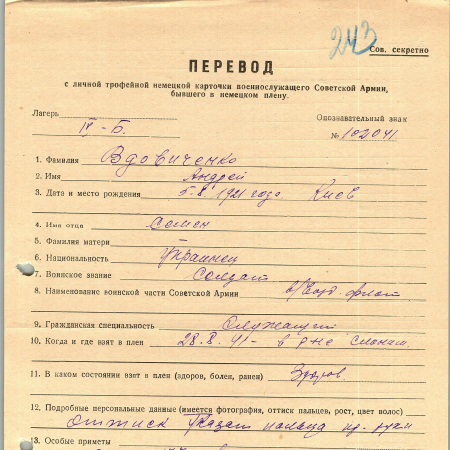 243
Сов. секретно
ПЕРЕВОД
с личной трофейной немецкой карточки военнослужащего Советской Армии,
бывшего в немецком плену.
Лагерь Опознавательный знак
IV-Б. № 102041
1. Фамилия Вдовиченко
2. Имя Андрей
3. Дата и место рождения 5.8.1921 года Киев
4. Имя отца Семен
5. Фамилия матери
6. Национальность Украинец
7. Воинское звание Солдат
8. Наименование воинской части Советской Армии флот
9. Гражданская специальность Служащий
10. Когда и где взят в плен 28.8.41- в р-не
11. В каком состоянии взят в плен (здоров, болен, ранен) Здоров
12. Подробные персональные данные (имеется фотография, оттиск пальцев, рост, цвет волос)
Оттиск указат пальца пр. руки
13. Особые приметы